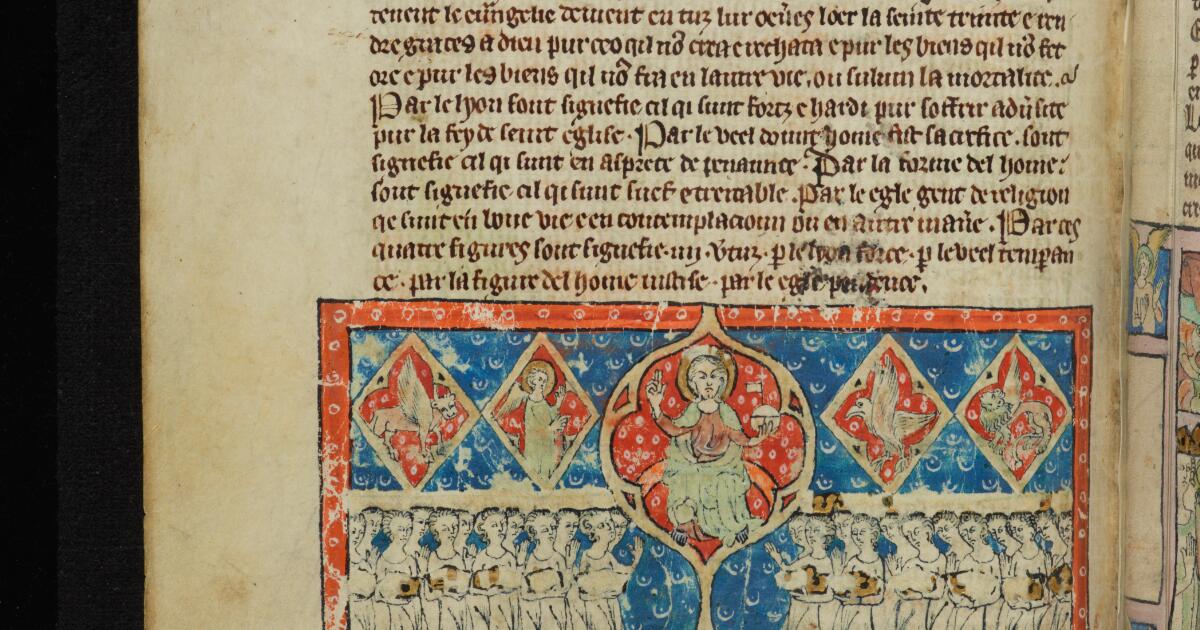 tenent le euangelie deiuent en tuz lur oeures loer la seinte trinite e ren
dre graces a dieu pur ceo qil nō crea e rechata e pur les biens qil nō fet
ore e pur les biens qil nō fra en lautre vie, ou sulum la mortalite.
Par le lyon sont signefie cil qi sunt fortz e hardi pur soffrir aduersite
pur la fey de seint eglise. Par le veel dount home fist sacrifice. sont
signefie cil qi sunt en asprete de penaunce. Par la forme del home
sont signefie cil qi sunt suef e tretable. Par le egle gent de religion
qe sunt en bone vie e en contemplacioun ou en autre manere. Par ces
quatre figures sont signefie .iiii. vertuz. p le lyon force. p le veel tempan
ce. par la figure del home iustise. par le egle prudence.